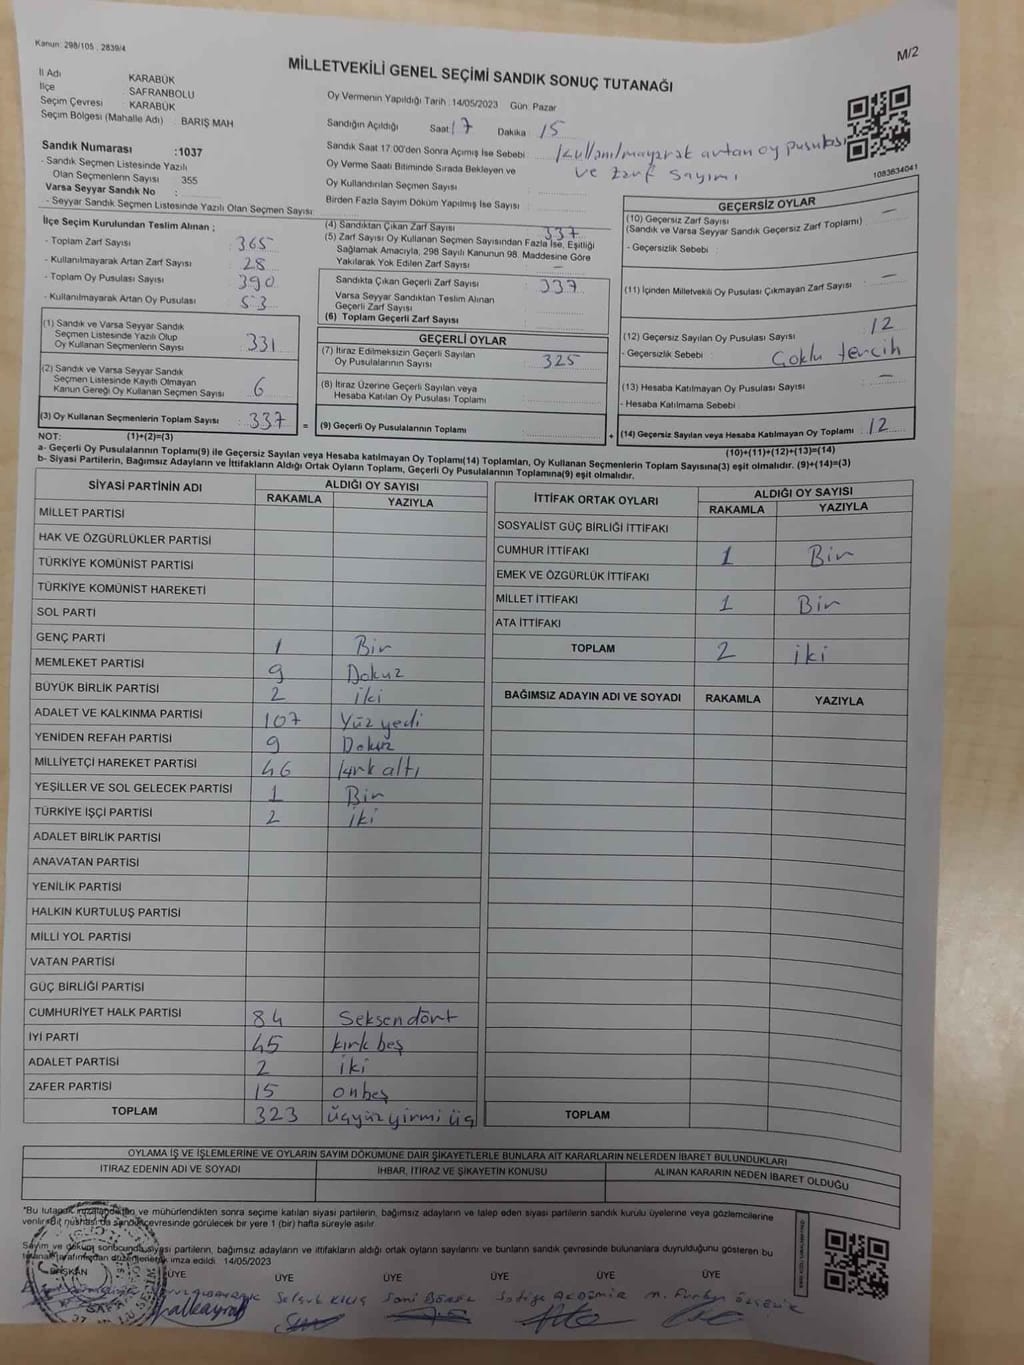 Kanun: 298/105 , 2839/4
M/2
MİLLETVEKİLİ GENEL SEÇİMİ SANDIK SONUÇ TUTANAĞI
İl Adı KARABÜK
İlçe SAFRANBOLU
Seçim Çevresi KARABÜK
Seçim Bölgesi (Mahalle Adı) : BARIŞ MAH
Sandık Numarası :1037
- Sandık Seçmen Listesinde Yazılı
Olan Seçmenlerin Sayısı 355
Varsa Seyyar Sandık No :
- Seyyar Sandık Seçmen Listesinde Yazılı Olan Seçmen Sayısı:
Oy Vermenin Yapıldığı Tarih :14/05/2023 Gün: Pazar
Sandığın Açıldığı Saat 17 Dakika : 15
Sandık Saat 17:00'den Sonra Açımış İse Sebebi : Kullanılmayarak artan oy pusulası
ve zarf sayımı
Oy Verme Saati Bitiminde Sırada Bekleyen ve
Oy Kullandırılan Seçmen Sayısı
Birden Fazla Sayım Döküm Yapılmış İse Sayısı :
108363404
İlçe Seçim Kurulundan Teslim Alınan ;
- Toplam Zarf Sayısı : 365
- Kullanılmayarak Artan Zarf Sayısı : 28
- Toplam Oy Pusulası Sayısı : 390
- Kullanılmayarak Artan Oy Pusulası : 53
(1) Sandık ve Varsa Seyyar Sandık
Seçmen Listesinde Yazılı Olup
Oy Kullanan Seçmenlerin Sayısı : 331
(2) Sandık ve Varsa Seyyar Sandık
Seçmen Listesinde Kayıtlı Olmayan
Kanun Gereği Oy Kullanan Seçmen Sayısı : 6
(3) Oy Kullanan Seçmenlerin Toplam Sayısı : 337
=
(4) Sandıktan Çıkan Zarf Sayısı : 337
(5) Zarf Sayısı Oy Kullanan Seçmen Sayısından Fazla İse, Eşitliği
Sağlamak Amacıyla, 298 Sayılı Kanunun 98. Maddesine Göre
Yakılarak Yok Edilen Zarf Sayısı : –
Sandıkta Çıkan Geçerli Zarf Sayısı : 337
Varsa Seyyar Sandıktan Teslim Alınan
Geçerli Zarf Sayısı
(6) Toplam Geçerli Zarf Sayısı :
GEÇERLİ OYLAR
(7) İtiraz Edilmeksizin Geçerli Sayılan
Oy Pusulalarının Sayısı : 325
(8) İtiraz Üzerine Geçerli Sayılan veya
Hesaba Katılan Oy Pusulası Toplamı :
(9) Geçerli Oy Pusulalarının Toplamı :
+
GEÇERSİZ OYLAR
(10) Geçersiz Zarf Sayısı : –
(Sandık ve Varsa Seyyar Sandık Geçersiz Zarf Toplamı)
- Geçersizlik Sebebi :
(11) İçinden Milletvekili Oy Pusulası Çıkmayan Zarf Sayısı : –
(12) Geçersiz Sayılan Oy Pusulası Sayısı : 12
- Geçersizlik Sebebi : Çoklu tercih
(13) Hesaba Katılmayan Oy Pusulası Sayısı : –
- Hesaba Katılmama Sebebi :
(14) Geçersiz Sayılan veya Hesaba Katılmayan Oy Toplamı : 12
NOT: (1)+(2)=(3)
(10)+(11)+(12)+(13)=(14)
a- Geçerli Oy Pusulalarının Toplamı(9) ile Geçersiz Sayılan veya Hesaba Katılmayan Oy Toplamı(14) Toplamları, Oy Kullanan Seçmenlerin Toplam Sayısına(3) eşit olmalıdır. (9)+(14)=(3)
b- Siyasi Partilerin, Bağımsız Adayların ve İttifakların Aldığı Ortak Oyların Toplamı, Geçerli Oy Pusulalarının Toplamına(9) eşit olmalıdır.
SİYASİ PARTİNİN ADI ALDIĞI OY SAYISI
RAKAMLA YAZIYLA
MİLLET PARTİSİ
HAK VE ÖZGÜRLÜKLER PARTİSİ
TÜRKİYE KOMÜNİST PARTİSİ
TÜRKİYE KOMÜNİST HAREKETİ
SOL PARTİ
GENÇ PARTİ 1 Bir
MEMLEKET PARTİSİ 9 Dokuz
BÜYÜK BİRLİK PARTİSİ 2 iki
ADALET VE KALKINMA PARTİSİ 107 Yüz yedi
YENİDEN REFAH PARTİSİ 9 Dokuz
MİLLİYETÇİ HAREKET PARTİSİ 46 kırk altı
YEŞİLLER VE SOL GELECEK PARTİSİ 1 Bir
TÜRKİYE İŞÇİ PARTİSİ 2 iki
ADALET BİRLİK PARTİSİ
ANAVATAN PARTİSİ
YENİLİK PARTİSİ
HALKIN KURTULUŞ PARTİSİ
MİLLİ YOL PARTİSİ
VATAN PARTİSİ
GÜÇ BİRLİĞİ PARTİSİ
CUMHURİYET HALK PARTİSİ 84 Seksendört
İYİ PARTİ 45 kırk beş
ADALET PARTİSİ 2 iki
ZAFER PARTİSİ 15 onbeş
TOPLAM 323 üçyüzyirmi üç
İTTİFAK ORTAK OYLARI ALDIĞI OY SAYISI
RAKAMLA YAZIYLA
SOSYALİST GÜÇ BİRLİĞİ İTTİFAKI
CUMHUR İTTİFAKI 1 Bir
EMEK VE ÖZGÜRLÜK İTTİFAKI
MİLLET İTTİFAKI 1 Bir
ATA İTTİFAKI
TOPLAM 2 iki
BAĞIMSIZ ADAYIN ADI VE SOYADI RAKAMLA YAZIYLA
TOPLAM
OYLAMA İŞ VE İŞLEMLERİNE VE OYLARIN SAYIM DÖKÜMÜNE DAİR ŞİKAYETLERLE BUNLARA AİT KARARLARIN NELERDEN İBARET BULUNDUKLARI
İTİRAZ EDENİN ADI VE SOYADI İHBAR, İTİRAZ VE ŞİKAYETİN KONUSU ALINAN KARARIN NEDEN İBARET OLDUĞU
*Bu tutanak imzalandıktan ve mühürlendikten sonra seçime katılan siyasi partilerin, bağımsız adayların ve talep eden siyasi partilerin sandık kurulu üyelerine veya gözlemcilerine
verilir. Bir nüshası da sandık çevresinde görülecek bir yere 1 (bir) hafta süreyle asılır.
Sayım ve döküm sonucunda siyasi partilerin, bağımsız adayların ve ittifakların aldığı ortak oyların sayılarını ve bunların sandık çevresinde bulunanlara duyurulduğunu gösteren bu
tutanak tarafımızdan düzenlenerek imza edildi. 14/05/2023
BAŞKAN ÜYE ÜYE ÜYE ÜYE ÜYE ÜYE
Selçuk KILIÇ